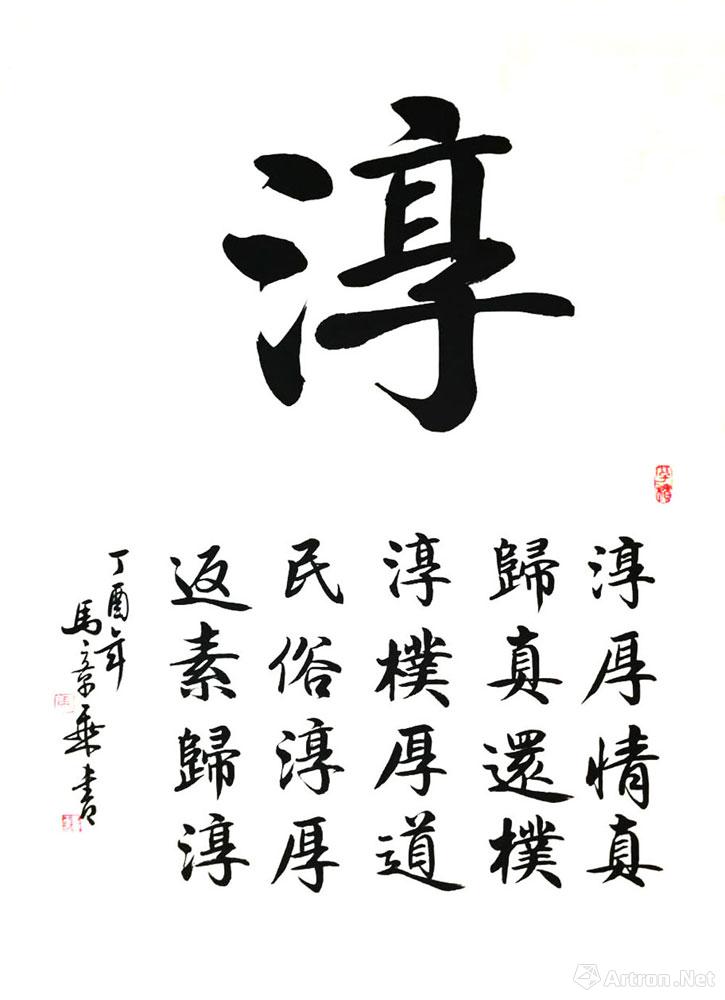 淳
淳厚情真
歸真還樸
淳樸厚道
民俗淳厚
返素歸淳
丁酉年
馬景乘書
Artron.Net